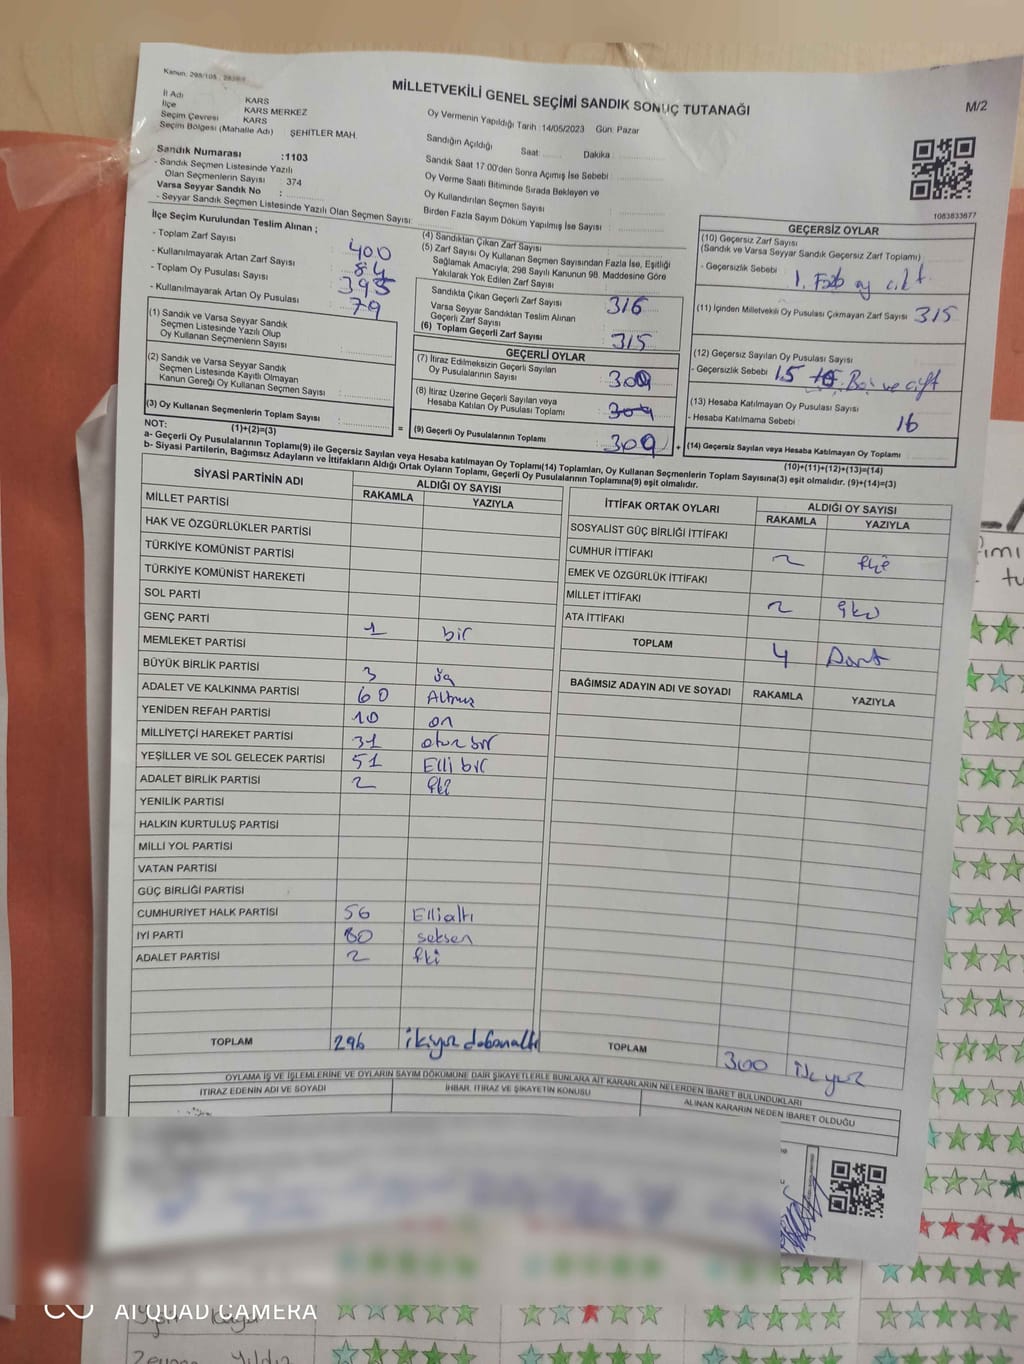 Kanun: 298/105
MİLLETVEKİLİ GENEL SEÇİMİ SANDIK SONUÇ TUTANAĞI
M/2
İl Adı KARS
İlçe KARS MERKEZ
Seçim Çevresi KARS
Seçim Bölgesi (Mahalle Adı) ŞEHİTLER MAH.
Sandık Numarası :1103
- Sandık Seçmen Listesinde Yazılı
Olan Seçmenlerin Sayısı 374
Varsa Seyyar Sandık No :
- Seyyar Sandık Seçmen Listesinde Yazılı Olan Seçmen Sayısı:
Oy Vermenin Yapıldığı Tarih :14/05/2023 Gün: Pazar
Sandığın Açıldığı Saat: Dakika :
Sandık Saat 17:00'den Sonra Açımış İse Sebebi :
Oy Verme Saati Bitiminde Sırada Bekleyen ve
Oy Kullandırılan Seçmen Sayısı :
Birden Fazla Sayım Döküm Yapılmış İse Sayısı :
1083833677
İlçe Seçim Kurulundan Teslim Alınan ;
- Toplam Zarf Sayısı : 400
- Kullanılmayarak Artan Zarf Sayısı : 84
- Toplam Oy Pusulası Sayısı : 395
- Kullanılmayarak Artan Oy Pusulası : 79
(1) Sandık ve Varsa Seyyar Sandık
Seçmen Listesinde Yazılı Olup
Oy Kullanan Seçmenlerin Sayısı :
(2) Sandık ve Varsa Seyyar Sandık
Seçmen Listesinde Kayıtlı Olmayan
Kanun Gereği Oy Kullanan Seçmen Sayısı :
(3) Oy Kullanan Seçmenlerin Toplam Sayısı :
(1)+(2)=(3)
(4) Sandıktan Çıkan Zarf Sayısı :
(5) Zarf Sayısı Oy Kullanan Seçmen Sayısından Fazla İse, Eşitliği
Sağlamak Amacıyla, 298 Sayılı Kanunun 98. Maddesine Göre
Yakılarak Yok Edilen Zarf Sayısı :
Sandıkta Çıkan Geçerli Zarf Sayısı : 316
Varsa Seyyar Sandıktan Teslim Alınan
Geçerli Zarf Sayısı :
(6) Toplam Geçerli Zarf Sayısı : 315
GEÇERLİ OYLAR
(7) İtiraz Edilmeksizin Geçerli Sayılan
Oy Pusulalarının Sayısı : 300
(8) İtiraz Üzerine Geçerli Sayılan veya
Hesaba Katılan Oy Pusulası Toplamı :
= (9) Geçerli Oy Pusulalarının Toplamı : 300 +
GEÇERSİZ OYLAR
(10) Geçersiz Zarf Sayısı
(Sandık ve Varsa Seyyar Sandık Geçersiz Zarf Toplamı) :
- Geçersizlik Sebebi : 1.
(11) İçinden Milletvekili Oy Pusulası Çıkmayan Zarf Sayısı 315
(12) Geçersiz Sayılan Oy Pusulası Sayısı :
- Geçersizlik Sebebi 15 ve çift
(13) Hesaba Katılmayan Oy Pusulası Sayısı :
- Hesaba Katılmama Sebebi : 16
(14) Geçersiz Sayılan veya Hesaba Katılmayan Oy Toplamı :
(10)+(11)+(12)+(13)=(14)
NOT:
a- Geçerli Oy Pusulalarının Toplamı(9) ile Geçersiz Sayılan veya Hesaba katılmayan Oy Toplamı(14) Toplamları, Oy Kullanan Seçmenlerin Toplam Sayısına(3) eşit olmalıdır. (9)+(14)=(3)
b- Siyasi Partilerin, Bağımsız Adayların ve İttifakların Aldığı Ortak Oyların Toplamı, Geçerli Oy Pusulalarının Toplamına(9) eşit olmalıdır.
SİYASİ PARTİNİN ADI ALDIĞI OY SAYISI
RAKAMLA YAZIYLA
MİLLET PARTİSİ
HAK VE ÖZGÜRLÜKLER PARTİSİ
TÜRKİYE KOMÜNİST PARTİSİ
TÜRKİYE KOMÜNİST HAREKETİ
SOL PARTİ
GENÇ PARTİ 1 bir
MEMLEKET PARTİSİ
BÜYÜK BİRLİK PARTİSİ 3 üç
ADALET VE KALKINMA PARTİSİ 60 Altmış
YENİDEN REFAH PARTİSİ 10 on
MİLLİYETÇİ HAREKET PARTİSİ 31 otuz bir
YEŞİLLER VE SOL GELECEK PARTİSİ 51 Elli bir
ADALET BİRLİK PARTİSİ 2 iki
YENİLİK PARTİSİ
HALKIN KURTULUŞ PARTİSİ
MİLLİ YOL PARTİSİ
VATAN PARTİSİ
GÜÇ BİRLİĞİ PARTİSİ
CUMHURİYET HALK PARTİSİ 56 Ellialtı
İYİ PARTİ 80 seksen
ADALET PARTİSİ 2 iki
TOPLAM 296 ikiyüz doksanaltı
İTTİFAK ORTAK OYLARI ALDIĞI OY SAYISI
RAKAMLA YAZIYLA
SOSYALİST GÜÇ BİRLİĞİ İTTİFAKI
CUMHUR İTTİFAKI 2 iki
EMEK VE ÖZGÜRLÜK İTTİFAKI
MİLLET İTTİFAKI 2 iki
ATA İTTİFAKI
TOPLAM 4 Dört
BAĞIMSIZ ADAYIN ADI VE SOYADI RAKAMLA YAZIYLA
TOPLAM 300 üçyüz
OYLAMA İŞ VE İŞLEMLERİNE VE OYLARIN SAYIM DÖKÜMÜNE DAİR ŞİKAYETLERLE BUNLARA AİT KARARLARIN NELERDEN İBARET BULUNDUKLARI
İTİRAZ EDENİN ADI VE SOYADI İHBAR, İTİRAZ VE ŞİKAYETİN KONUSU ALINAN KARARIN NEDEN İBARET OLDUĞU
AI QUAD CAMERA